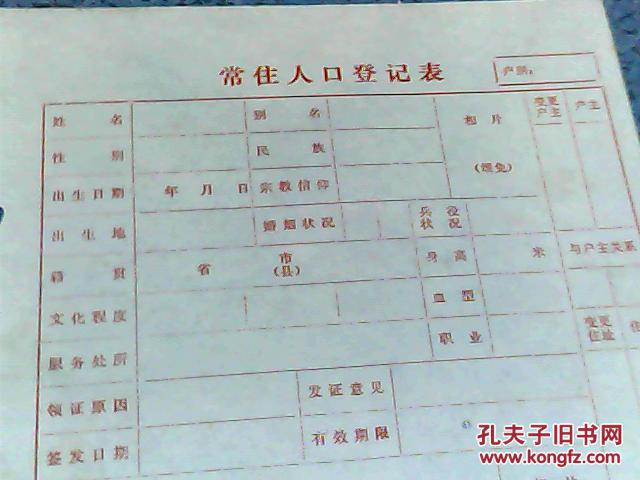 常住人口登记表
户别：
姓名 别名 相片 变更户主 户主
性别 民族 (缓免)
出生日期 年 月 日 宗教信仰
出生地 婚姻状况 兵役状况
籍贯 省 市(县) 身高 米 与户主关系
文化程度 血型
服务处所 职业 变更住址 住
领证原因 发证意见
签发日期 有效期限
孔夫子旧书网
www.kongfz.com